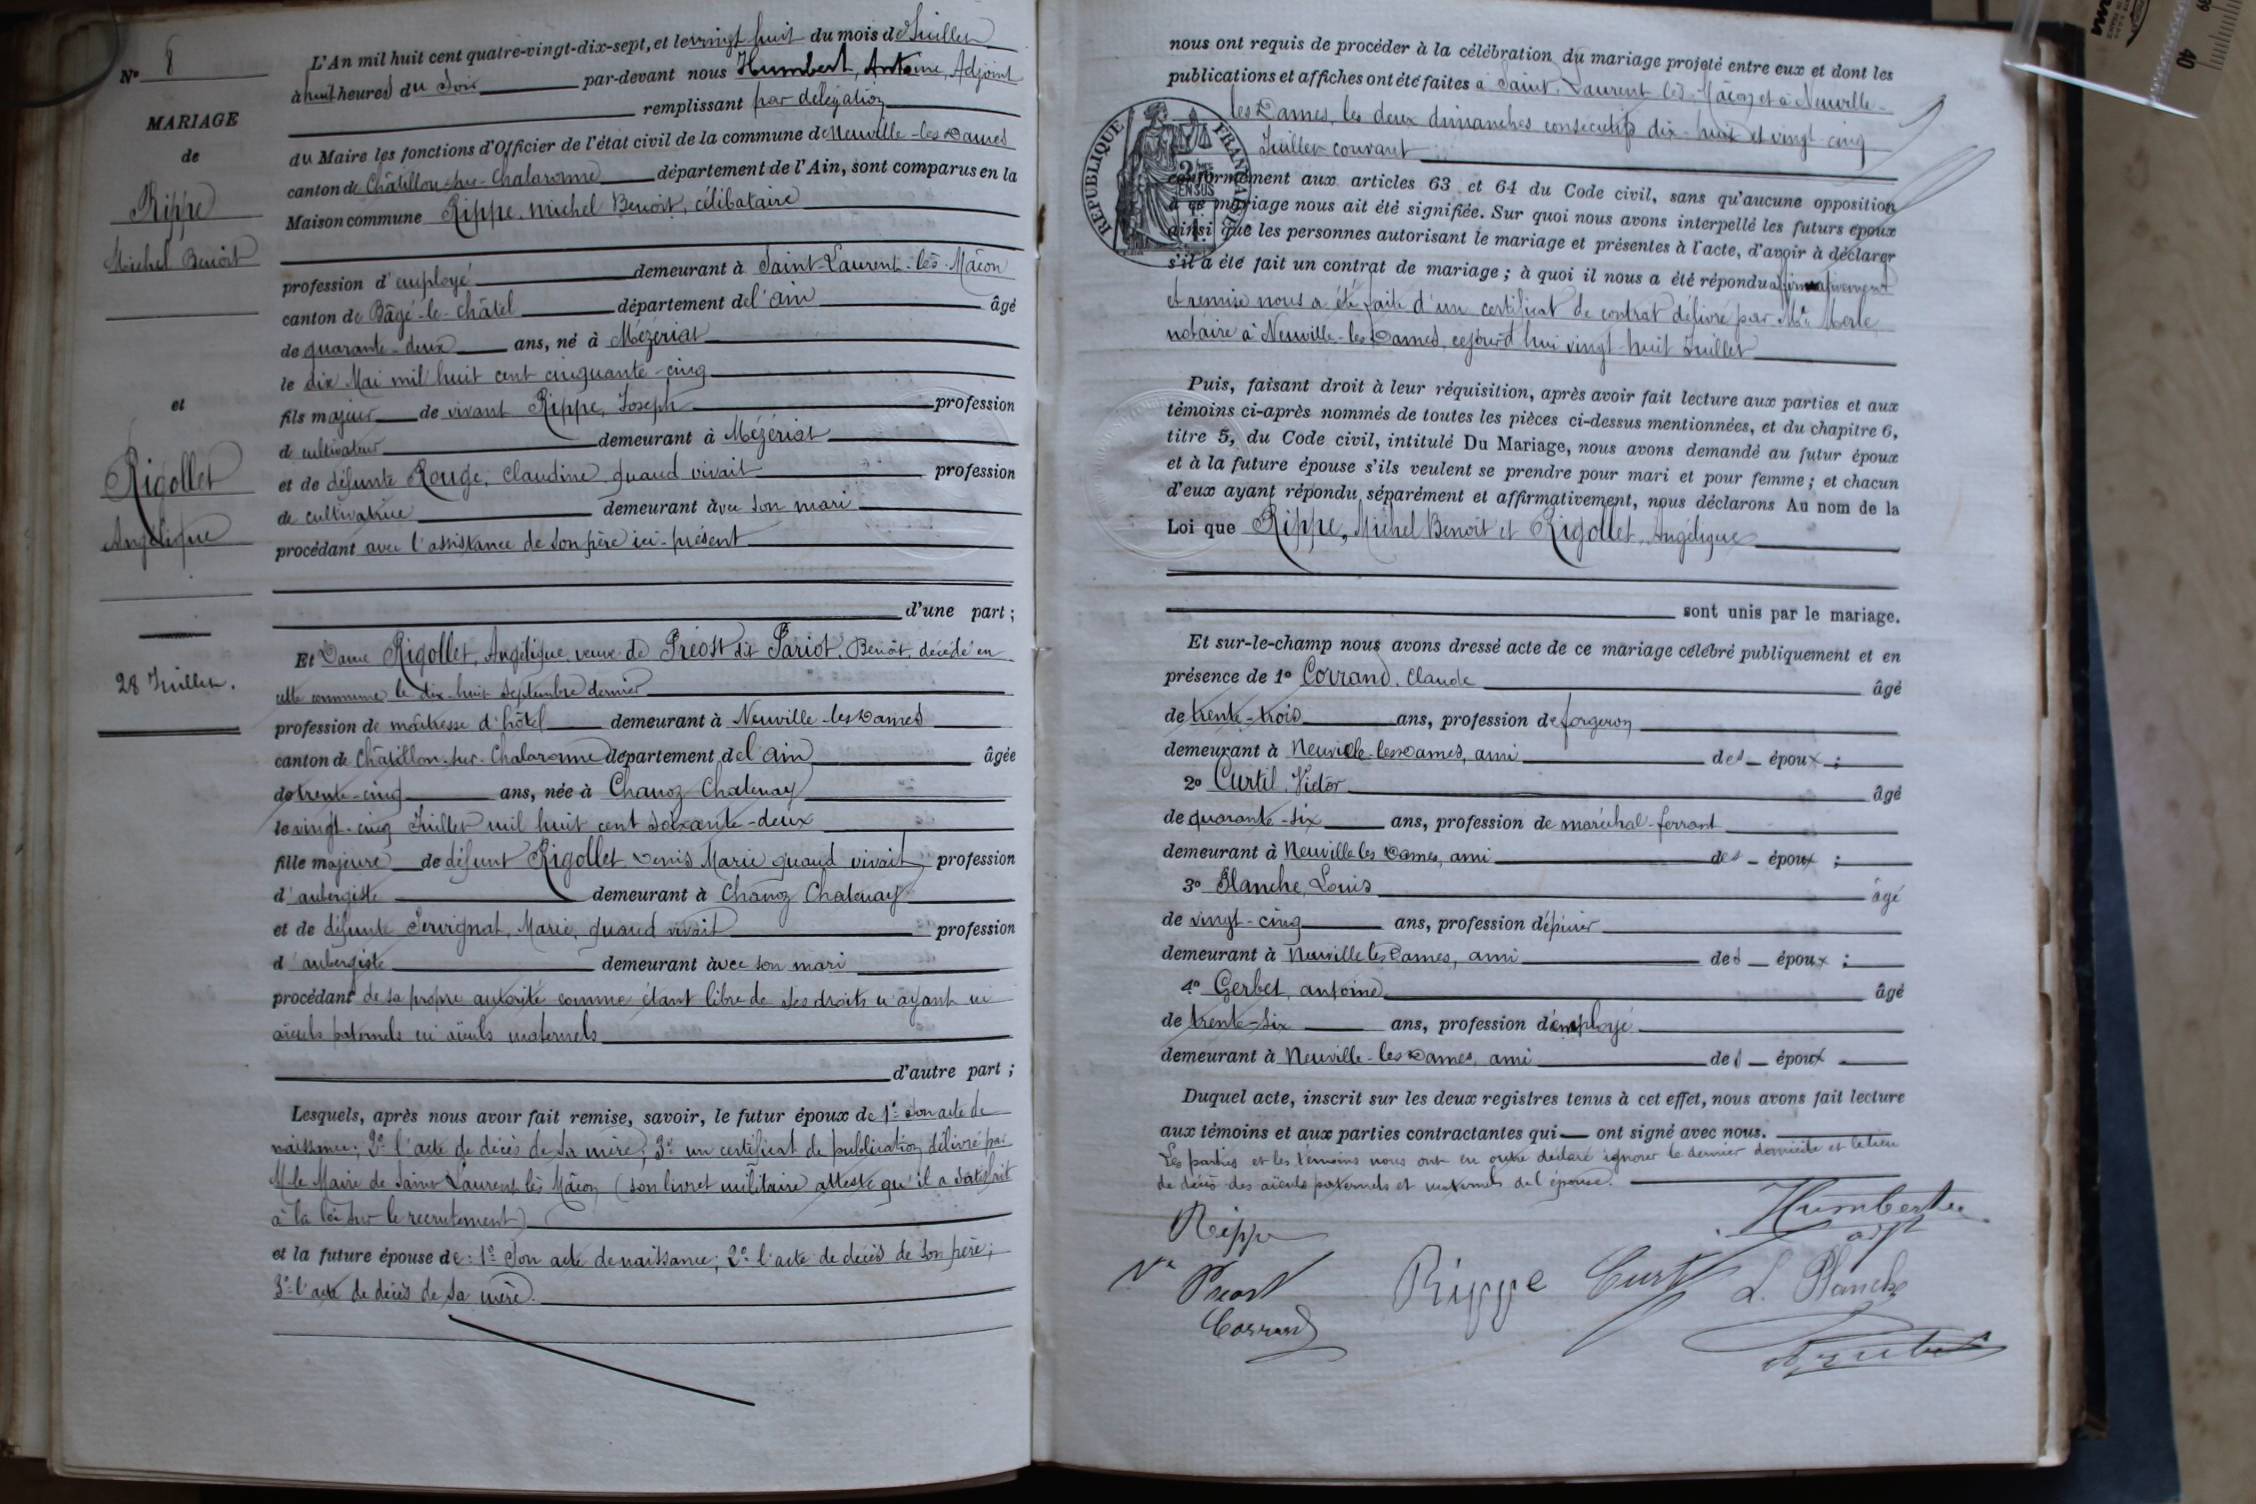 N° 8
MARIAGE
de
Rippe
Michel Benoît
et
Rigollet
Angélique
28 Juillet.
L'An mil huit cent quatre-vingt-dix-sept, et le vingt huit du mois de Juillet
à huit heures du soir par-devant nous Humbert, Antoine, Adjoint
remplissant par délégation
du Maire les fonctions d'Officier de l'état civil de la commune de Neuville-les-Dames
canton de Châtillon-sur-Chalaronne département de l'Ain, sont comparus en la
Maison commune Rippe, Michel Benoît, célibataire
profession d'employé demeurant à Saint-Laurent-lès-Mâcon
canton de Bâgé-le-Châtel département de l'ain âgé
de quarante-deux ans, né à Mézériat
le dix Mai mil huit cent cinquante-cinq
fils majeur de vivant Rippe, Joseph profession
de cultivateur demeurant à Mézériat
et de défunte Rouge, Claudine quand vivait profession
de cultivatrice demeurant avec son mari
procédant avec l'assistance de son père ici-présent
d'une part ;
Et Dame Rigollet, Angélique veuve de Préost dit Pariot, Benoît, décédé en
cette commune le dix-huit septembre dernier
profession de maîtresse d'hôtel demeurant à Neuville-les-Dames
canton de Châtillon-sur-Chalaronne département de l'ain âgée
de trente-cinq ans, née à Chanoz Chatenay
le vingt-cinq Juillet mil huit cent soixante-deux
fille majeure de défunt Rigollet Denis Marie quand vivait profession
d'aubergiste demeurant à Chanoz Chatenay
et de défunte Servignat, Marie, quand vivait profession
d'aubergiste demeurant avec son mari
procédant de sa propre autorité comme étant libre de ses droits n'ayant ni
aïeuls paternels ni aïeuls maternels
d'autre part ;
Lesquels, après nous avoir fait remise, savoir, le futur époux de 1° son acte de
naissance; 2° l'acte de décès de sa mère; 3° un certificat de publication délivré par
M. le Maire de Saint Laurent lès Mâcon (son livret militaire atteste qu'il a satisfait
à la loi sur le recrutement)
et la future épouse de : 1° son acte de naissance; 2° l'acte de décès de son père;
3° l'acte de décès de sa mère.
nous ont requis de procéder à la célébration du mariage projeté entre eux et dont les
publications et affiches ont été faites à Saint-Laurent-lès-Mâcon et à Neuville-
les Dames, les deux dimanches consécutifs dix-huit et vingt-cinq
Juillet courant
RÉPUBLIQUE FRANÇAISE
conformément aux articles 63 et 64 du Code civil, sans qu'aucune opposition
à ce mariage nous ait été signifiée. Sur quoi nous avons interpellé les futurs époux
ainsi que les personnes autorisant le mariage et présentes à l'acte, d'avoir à déclarer
s'il a été fait un contrat de mariage ; à quoi il nous a été répondu affirmativement
et remise nous a été faite d'un certificat de contrat délivré par Me Merle
notaire à Neuville-les-Dames, cejourd'hui vingt-huit Juillet
Puis, faisant droit à leur réquisition, après avoir fait lecture aux parties et aux
témoins ci-après nommés de toutes les pièces ci-dessus mentionnées, et du chapitre 6,
titre 5, du Code civil, intitulé Du Mariage, nous avons demandé au futur époux
et à la future épouse s'ils veulent se prendre pour mari et pour femme ; et chacun
d'eux ayant répondu séparément et affirmativement, nous déclarons Au nom de la
Loi que Rippe, Michel Benoît et Rigollet, Angélique
sont unis par le mariage.
Et sur-le-champ nous avons dressé acte de ce mariage célébré publiquement et en
présence de 1° Corrand, Claude âgé
de trente-trois ans, profession de forgeron
demeurant à Neuville-les-Dames, ami des époux ;
2° Curtil, Victor âgé
de quarante-six ans, profession de maréchal-ferrant
demeurant à Neuville les Dames, ami des époux ;
3° Planche, Louis âgé
de vingt-cinq ans, profession d'épicier
demeurant à Neuville les Dames, ami des époux ;
4° Gerbet, antoine âgé
de trente-six ans, profession d'employé
demeurant à Neuville-les-Dames, ami des époux
Duquel acte, inscrit sur les deux registres tenus à cet effet, nous avons fait lecture
aux témoins et aux parties contractantes qui ont signé avec nous.
Les parties et les témoins nous ont en outre déclaré ignorer le dernier domicile et le lieu
de décès des aïeuls paternels et maternels de l'épouse.
Rippe
Humbert
adjt
Ve Préost
Rippe
Curtil
L. Planche
Corrand
40